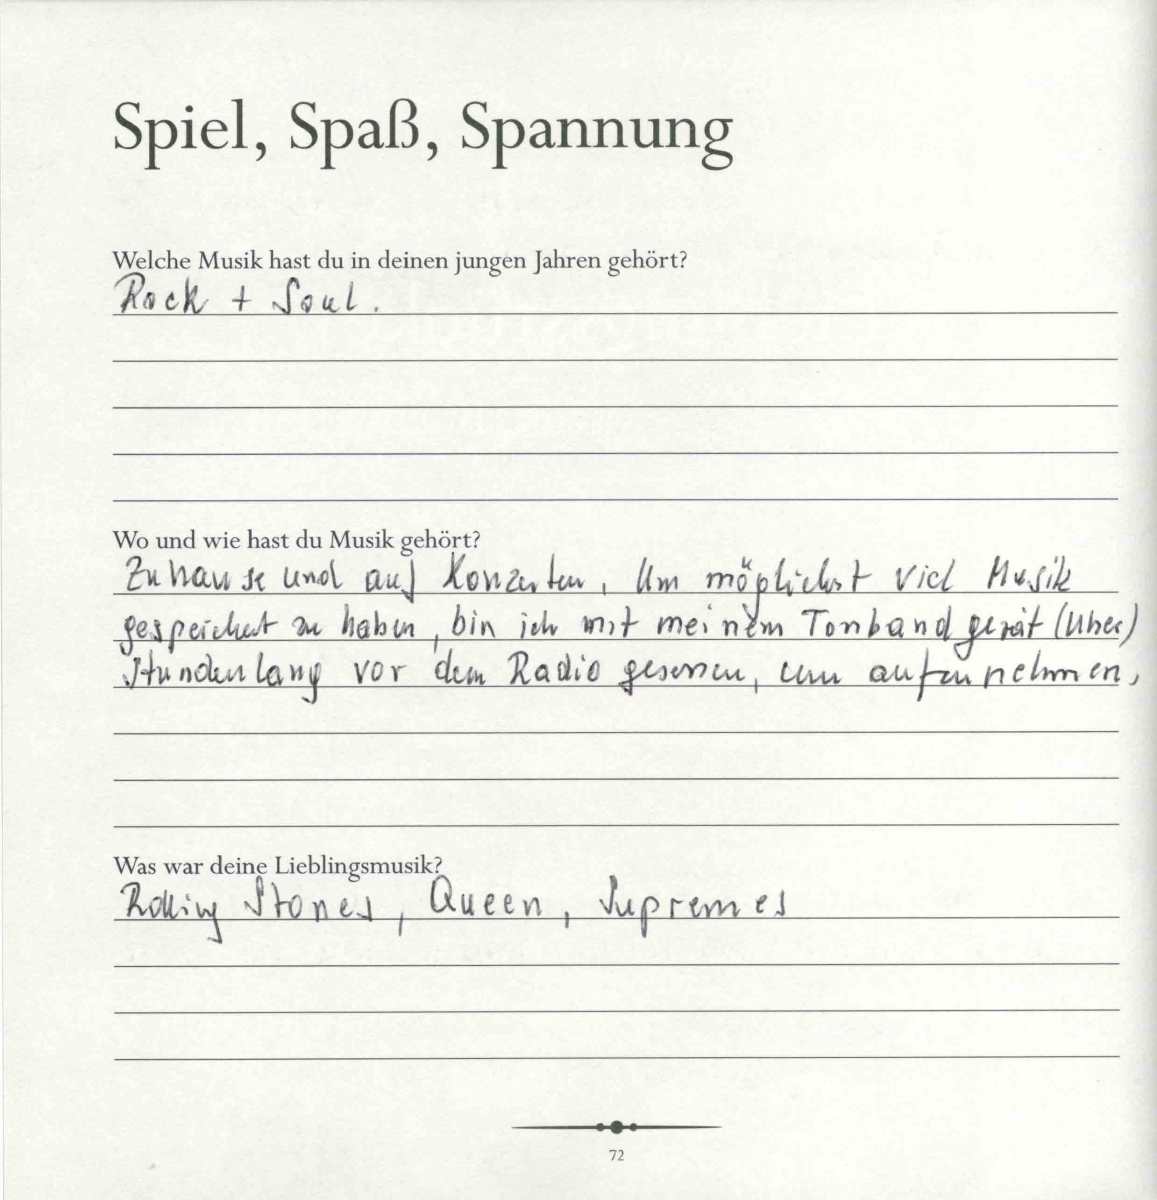 Spiel, Spaß, Spannung
Welche Musik hast du in deinen jungen Jahren gehört?
Rock + Soul.
Wo und wie hast du Musik gehört?
Zuhause und auf Konzerten, Um möglichst viel Musik
gespeichert zu haben, bin ich mit meinem Tonbandgerät (Uher)
Stundenlang vor dem Radio gesessen, um aufzunehmen,
Was war deine Lieblingsmusik?
Rolling Stones, Queen, Supremes
72